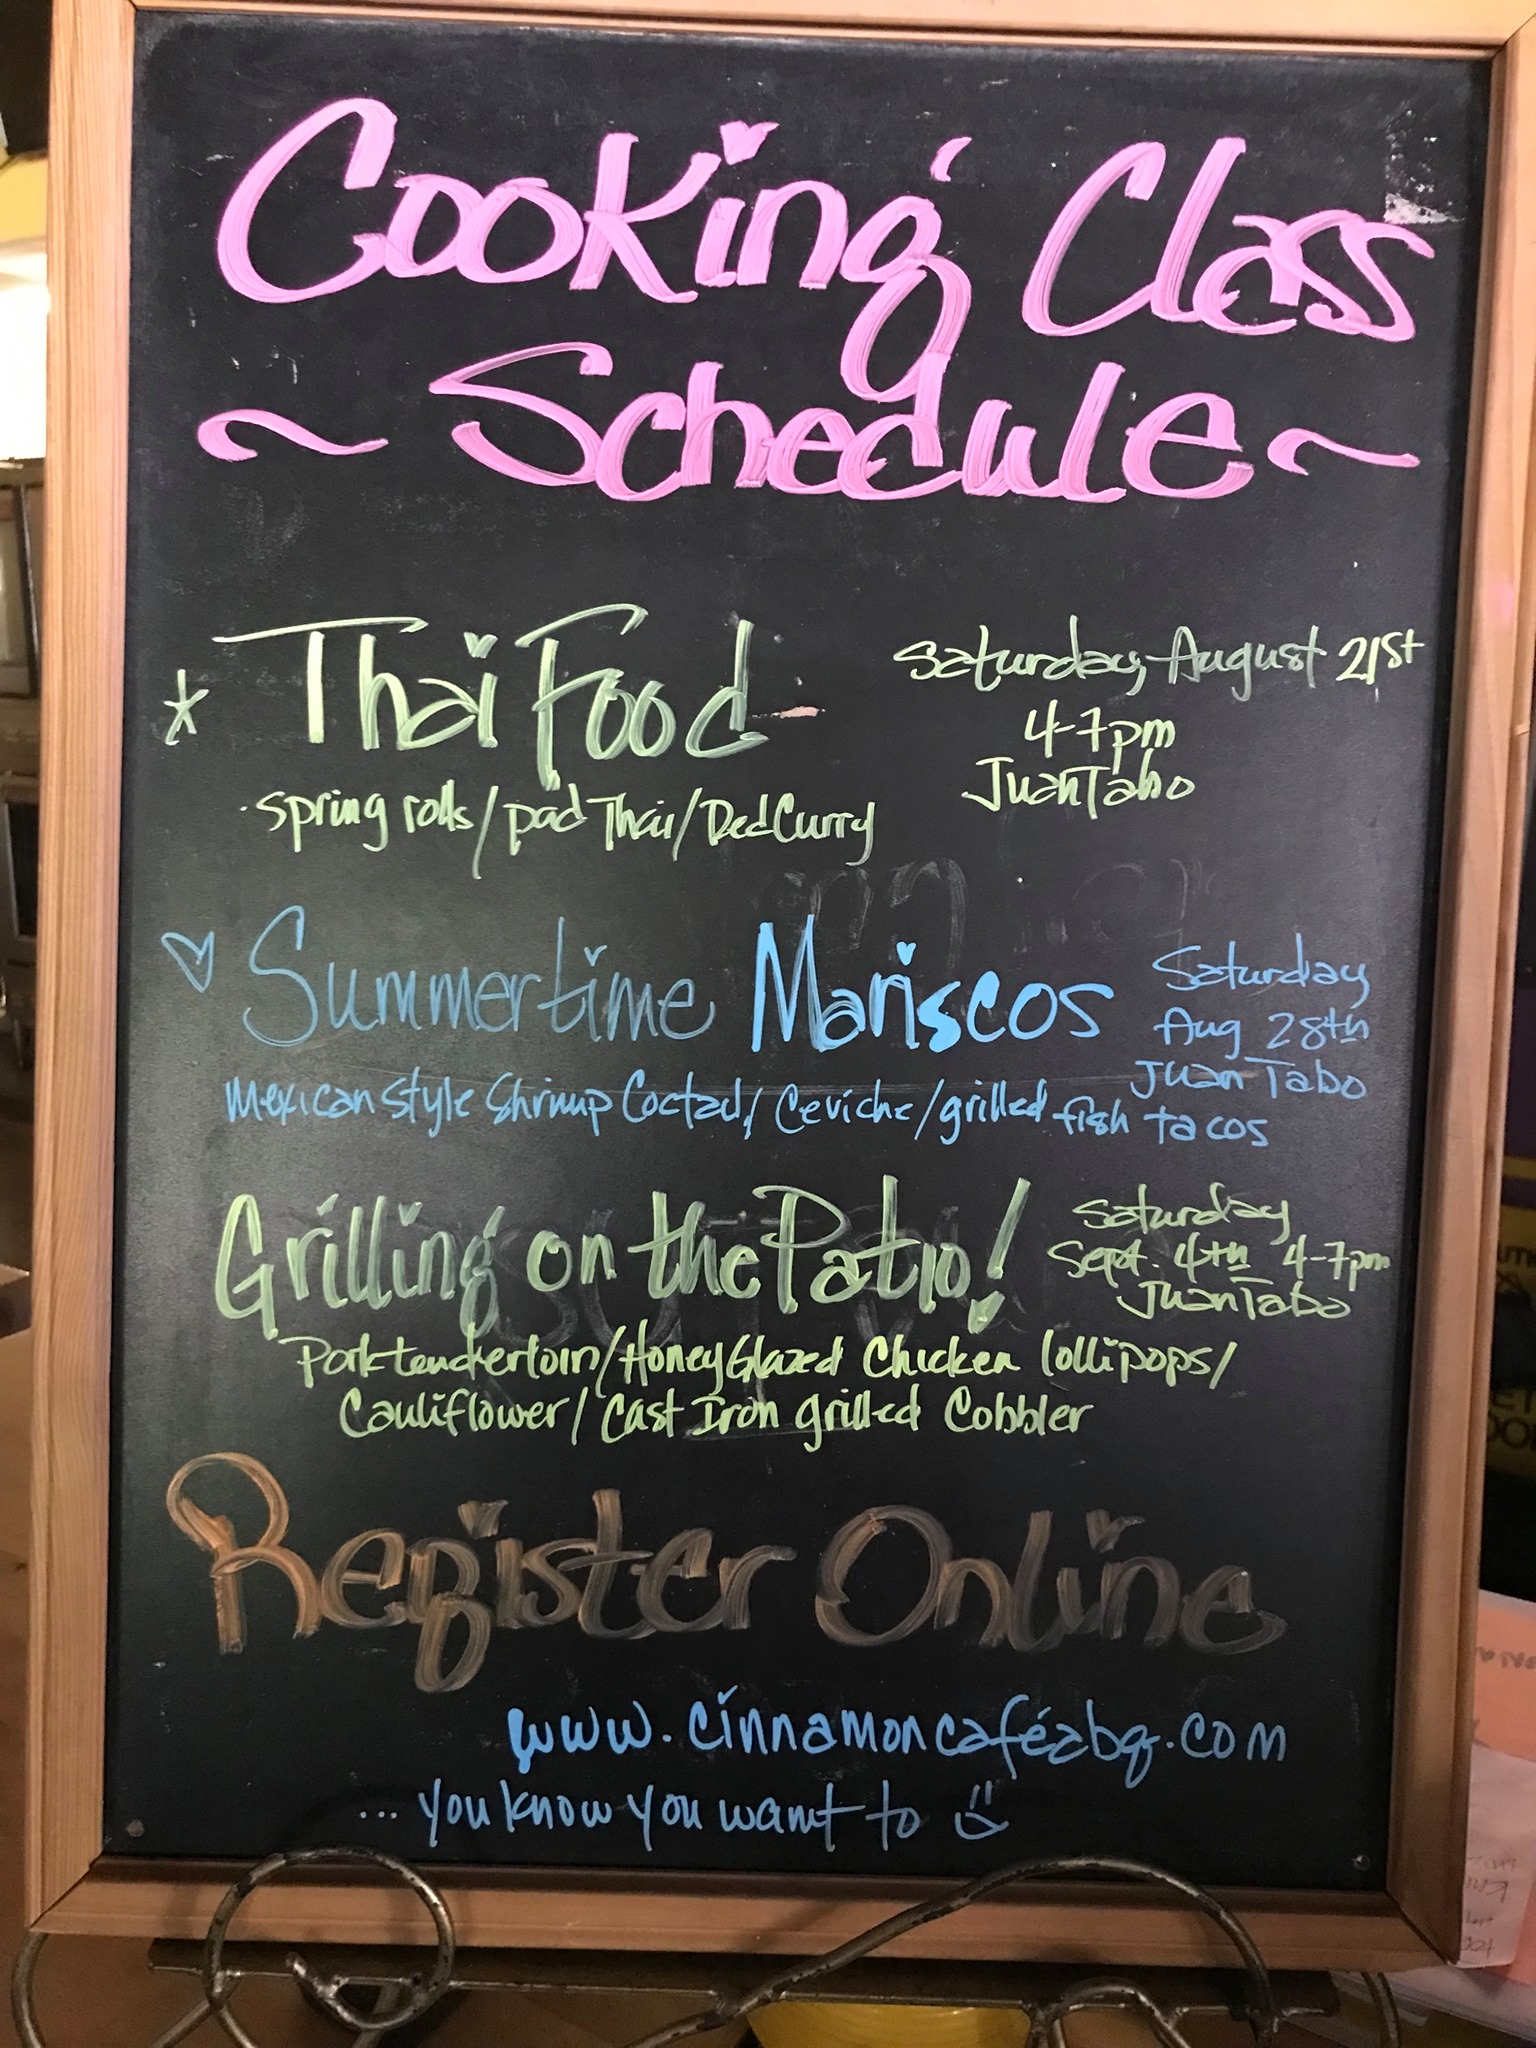 Cooking Class
~ Schedule ~
* Thai Food Saturday, August 21st
4-7pm
Juan Tabo
· spring rolls / pad Thai / Red Curry
♡ Summertime Mariscos Saturday
Aug 28th
Juan Tabo
Mexican style Shrimp Coctail / Ceviche / grilled fish tacos
Grilling on the Patio! Saturday
Sept. 4th 4-7pm
Juan Tabo
Pork tenderloin / Honey Glazed Chicken lollipops /
Cauliflower / Cast Iron grilled Cobbler
Register Online
www.cinnamoncaféabq.com
... you know you want to